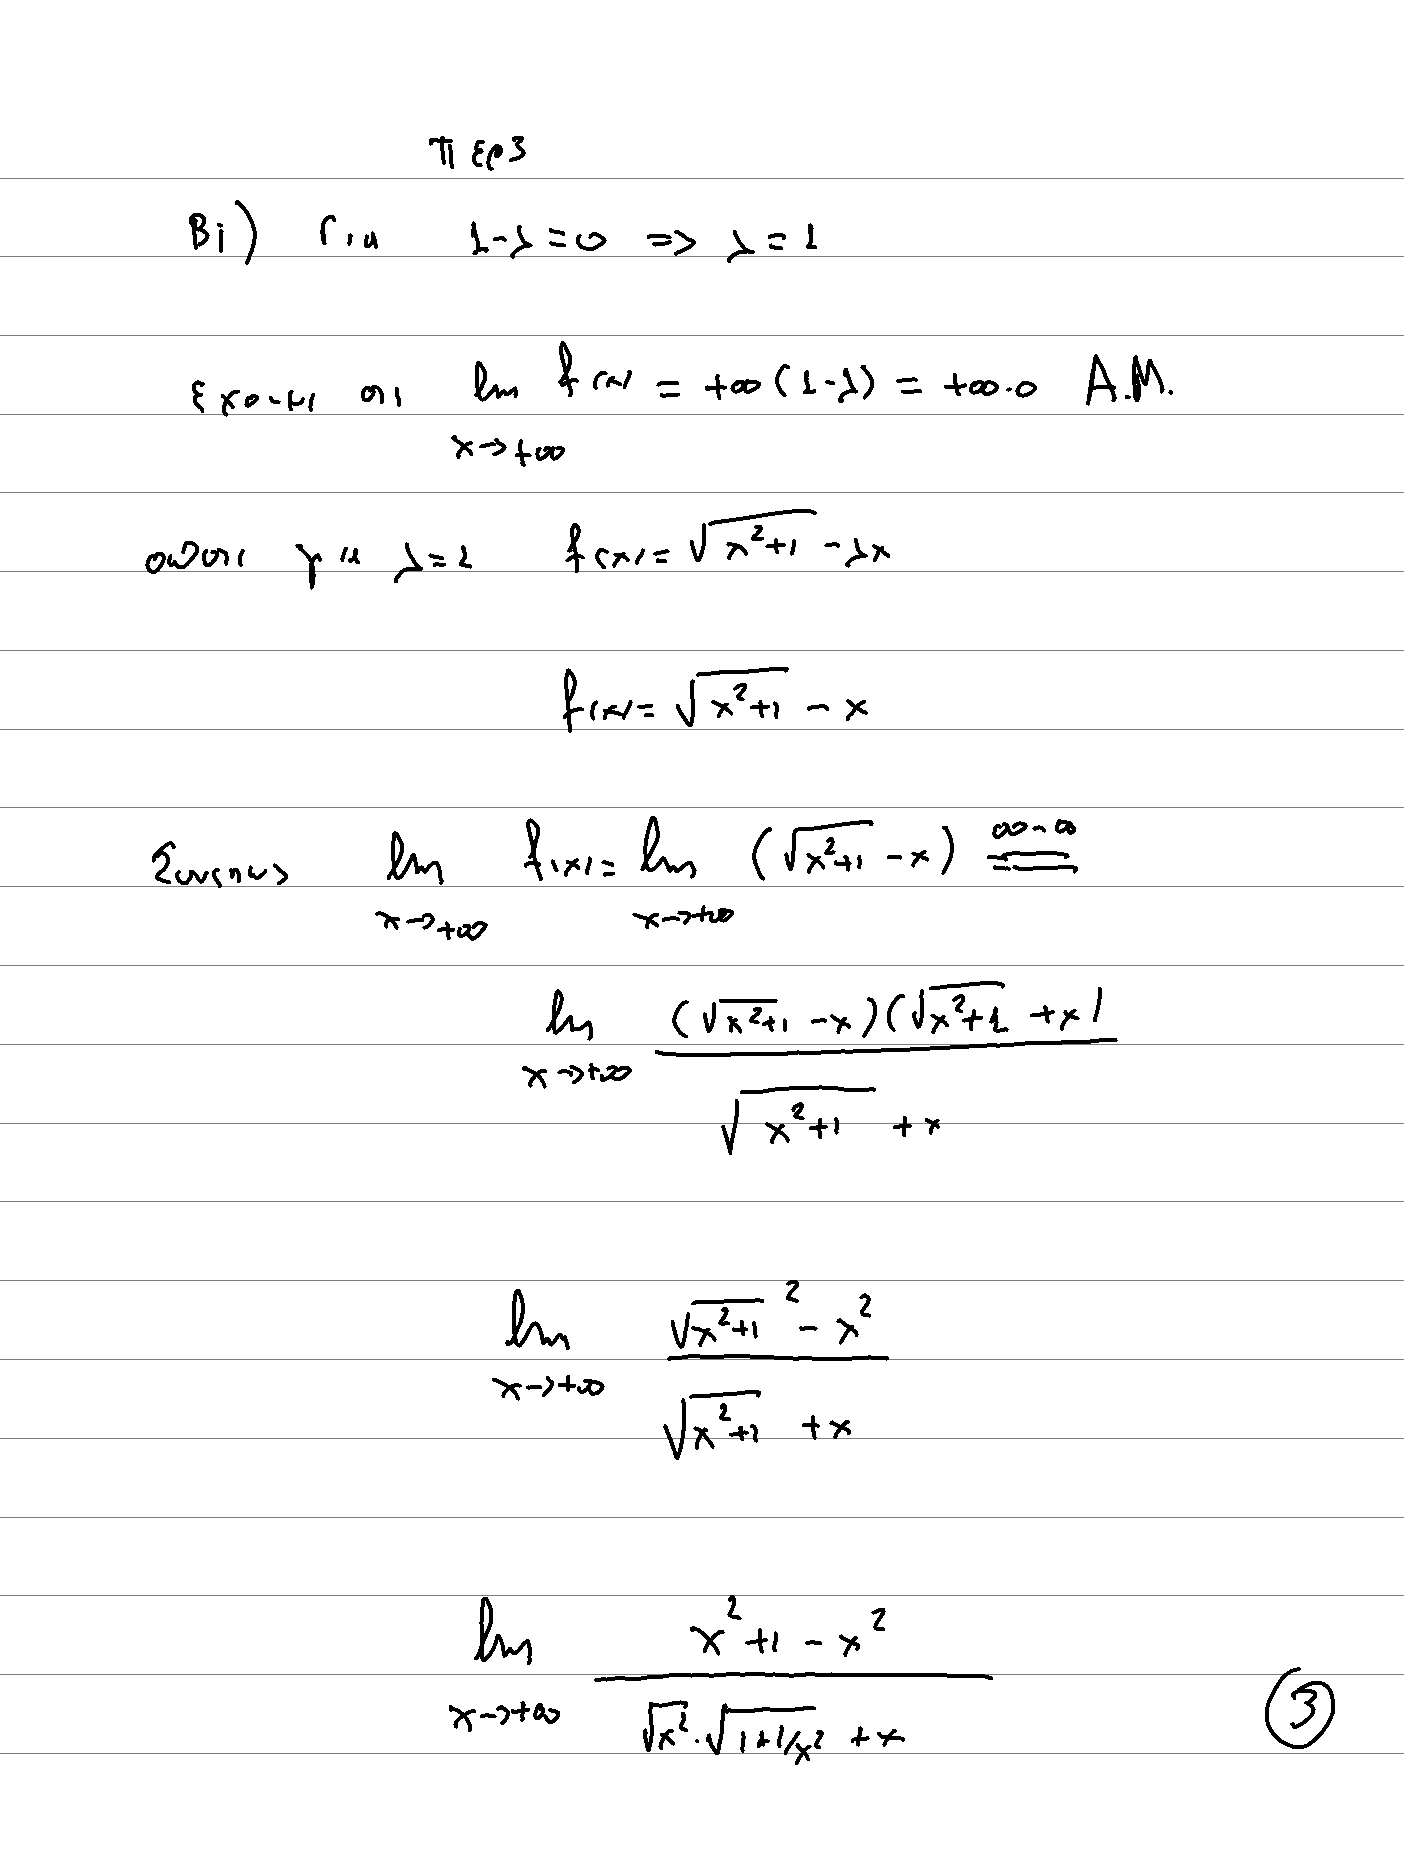 περ 3
Βi) Για 1-λ=0 => λ=1
Εχουμε οτι lim f(x) = +∞(1-λ) = +∞·0 Α.Μ.
x→+∞
οποτε για λ=1 f(x)= √x²+1 - λx
f(x)= √x²+1 - x
Συνεπως lim f(x)= lim (√x²+1 - x) ∞-∞ =
x→+∞ x→+∞
lim (√x²+1 - x)(√x²+1 + x)
x→+∞
√x²+1 + x
lim √x²+1 ² - x²
x→+∞
√x²+1 + x
lim x²+1 - x²
x→+∞ √x² · √1+1/x² + x
3